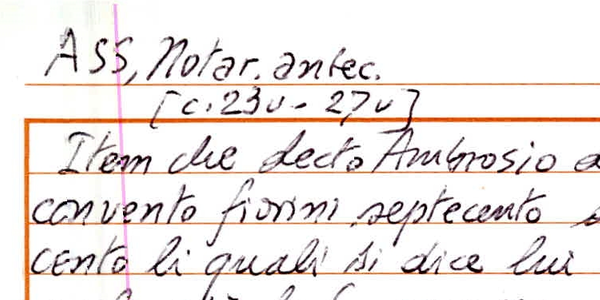 ASS, Notar. antec.
[c. 23v - 27v]
Item che decto Ambrosio
convento fiorini septecento
cento li quali si dice lui